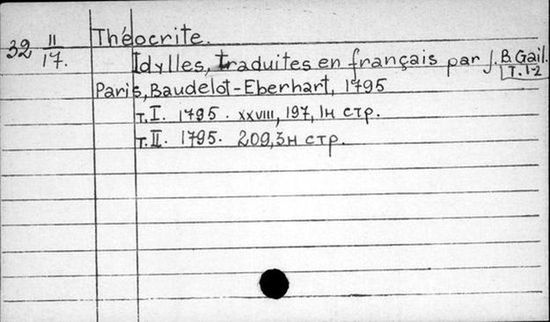 32 11/17.
Théocrite.
Idylles, traduites en français par J. B. Gail.
T. 1-2
Paris, Baudelot-Eberhart, 1795
т. I. 1795. XXVIII, 197, 1н стр.
т. II. 1795. 209, 3н стр.